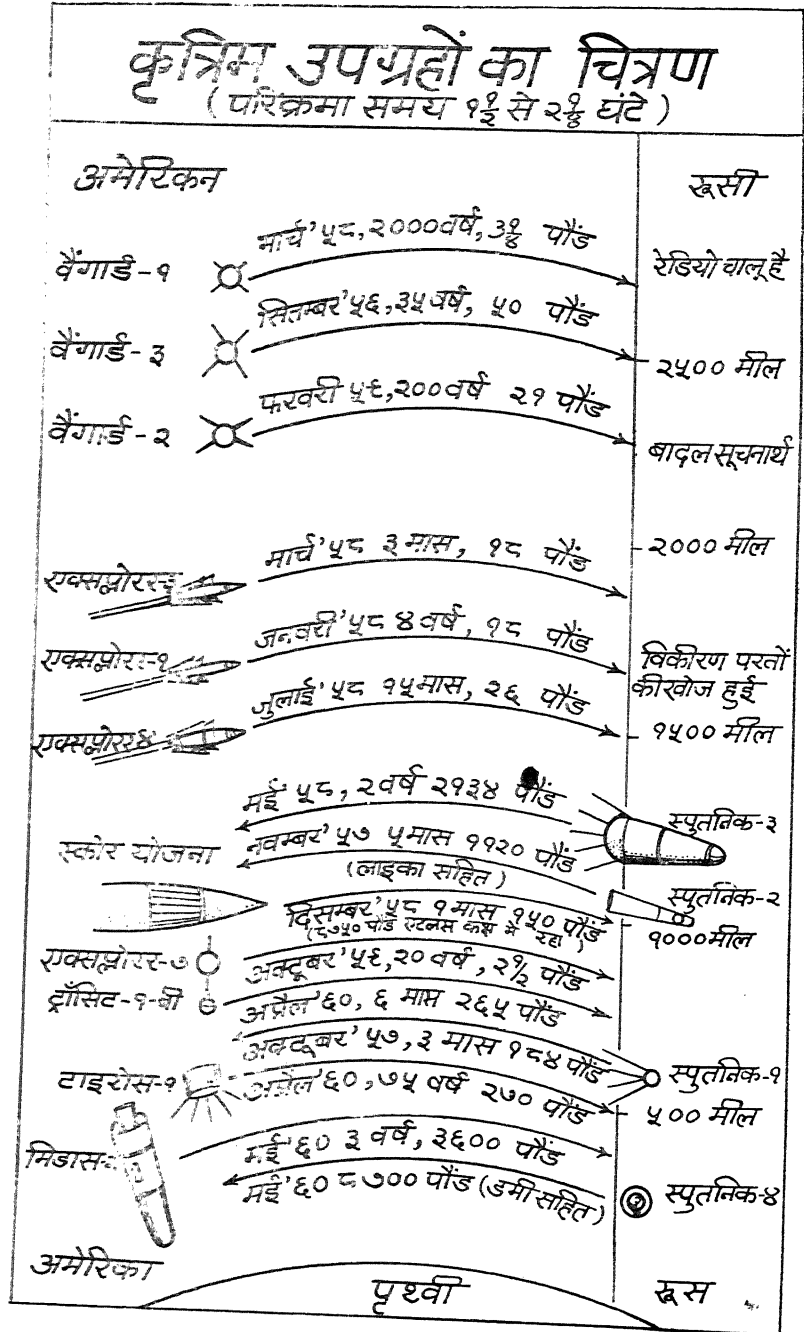 कृत्रिम उपग्रहों का चित्रण
(परिक्रमा समय ११/२ से २१/४ घंटे)
अमेरिकन
रूसी
मार्च'५८, २००० वर्ष, ३१/४ पौंड
वैंगार्ड-१
रेडियो चालू है
सितम्बर'५६, ३५ वर्ष, ५० पौंड
वैंगार्ड-३
२५०० मील
फरवरी ५९, २०० वर्ष २१ पौंड
वैंगार्ड-२
बादल सूचनार्थ
२००० मील
मार्च'५८ ३ मास, १८ पौंड
एक्सप्लोरर-३
जनवरी'५८ ४ वर्ष, १८ पौंड
एक्सप्लोरर-१
विकीरण परतों
की खोज हुई
जुलाई'५८ १५ मास, २६ पौंड
एक्सप्लोरर४
१५०० मील
मई'५८, २ वर्ष २१३४ पौंड
स्पुतनिक-३
नवम्बर'५७ ५ मास ११२० पौंड
(लाइका सहित)
स्कोर योजना
स्पुतनिक-२
दिसम्बर'५८ १ मास १५० पौंड
(८७५० पौंड एटलस कक्ष में रहा)
१००० मील
एक्सप्लोरर-७
अक्टूबर'५९, २० वर्ष, २१/२ पौंड
ट्राँसिट-१-बी
अप्रैल'६०, ६ मास २६५ पौंड
अक्टूबर'५७, ३ मास १८४ पौंड
टाइरोस-१
स्पुतनिक-१
अप्रैल'६०, ७५ वर्ष २७० पौंड
५०० मील
मई'६० ३ वर्ष, ३६०० पौंड
मिडास-
मई'६० ८७०० पौंड (डमी सहित)
स्पुतनिक-४
अमेरिका
पृथ्वी
रूस